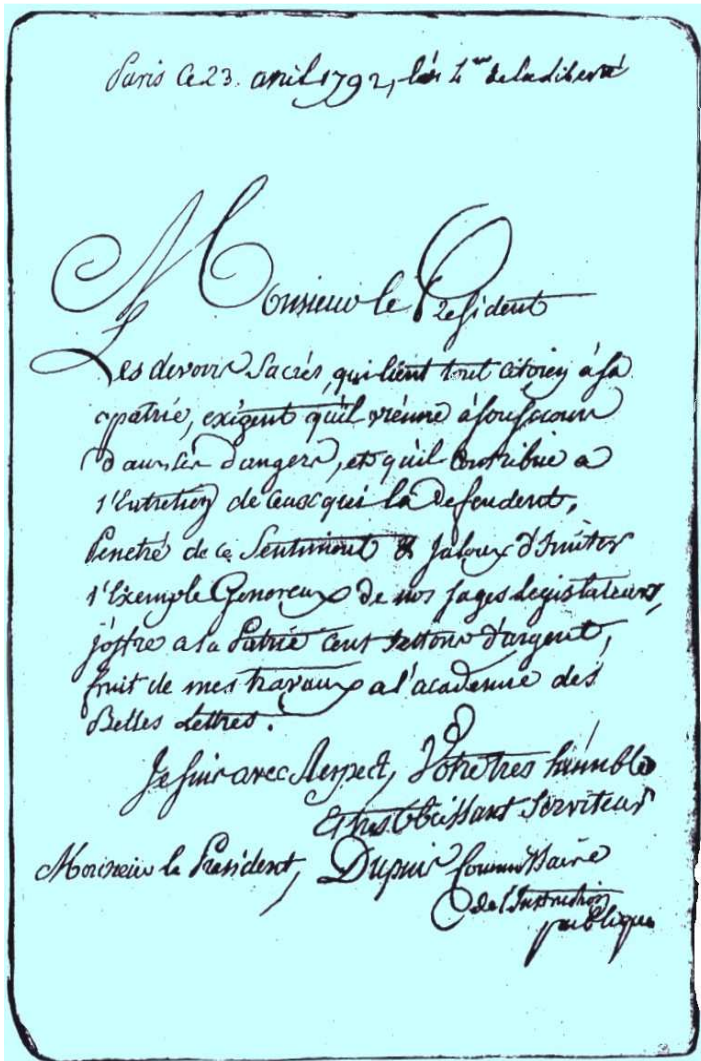 Paris Ce 23. avril 1792, l'an 4.me de la Liberté
Monsieur le President
Les devoirs Sacrés, qui lient tout citoien à sa
patrie, exigent qu'il vienne à son secours
dans ses dangers, et qu'il Contribue a
l'Entretien de ceux qui la Defendent,
Penetré de ce Sentiment & Jaloux d'imiter
l'Exemple Genereux de nos sages Legislateurs,
j'offre a la Patrie Cent Jettons d'argent,
fruit de mes travaux a l'academie des
Belles Lettres.
Je suis avec Respect, Votre très humble
Et tres Obeissant Serviteur
Monsieur le President, Dupuis Commissaire
de l'Instruction
publique